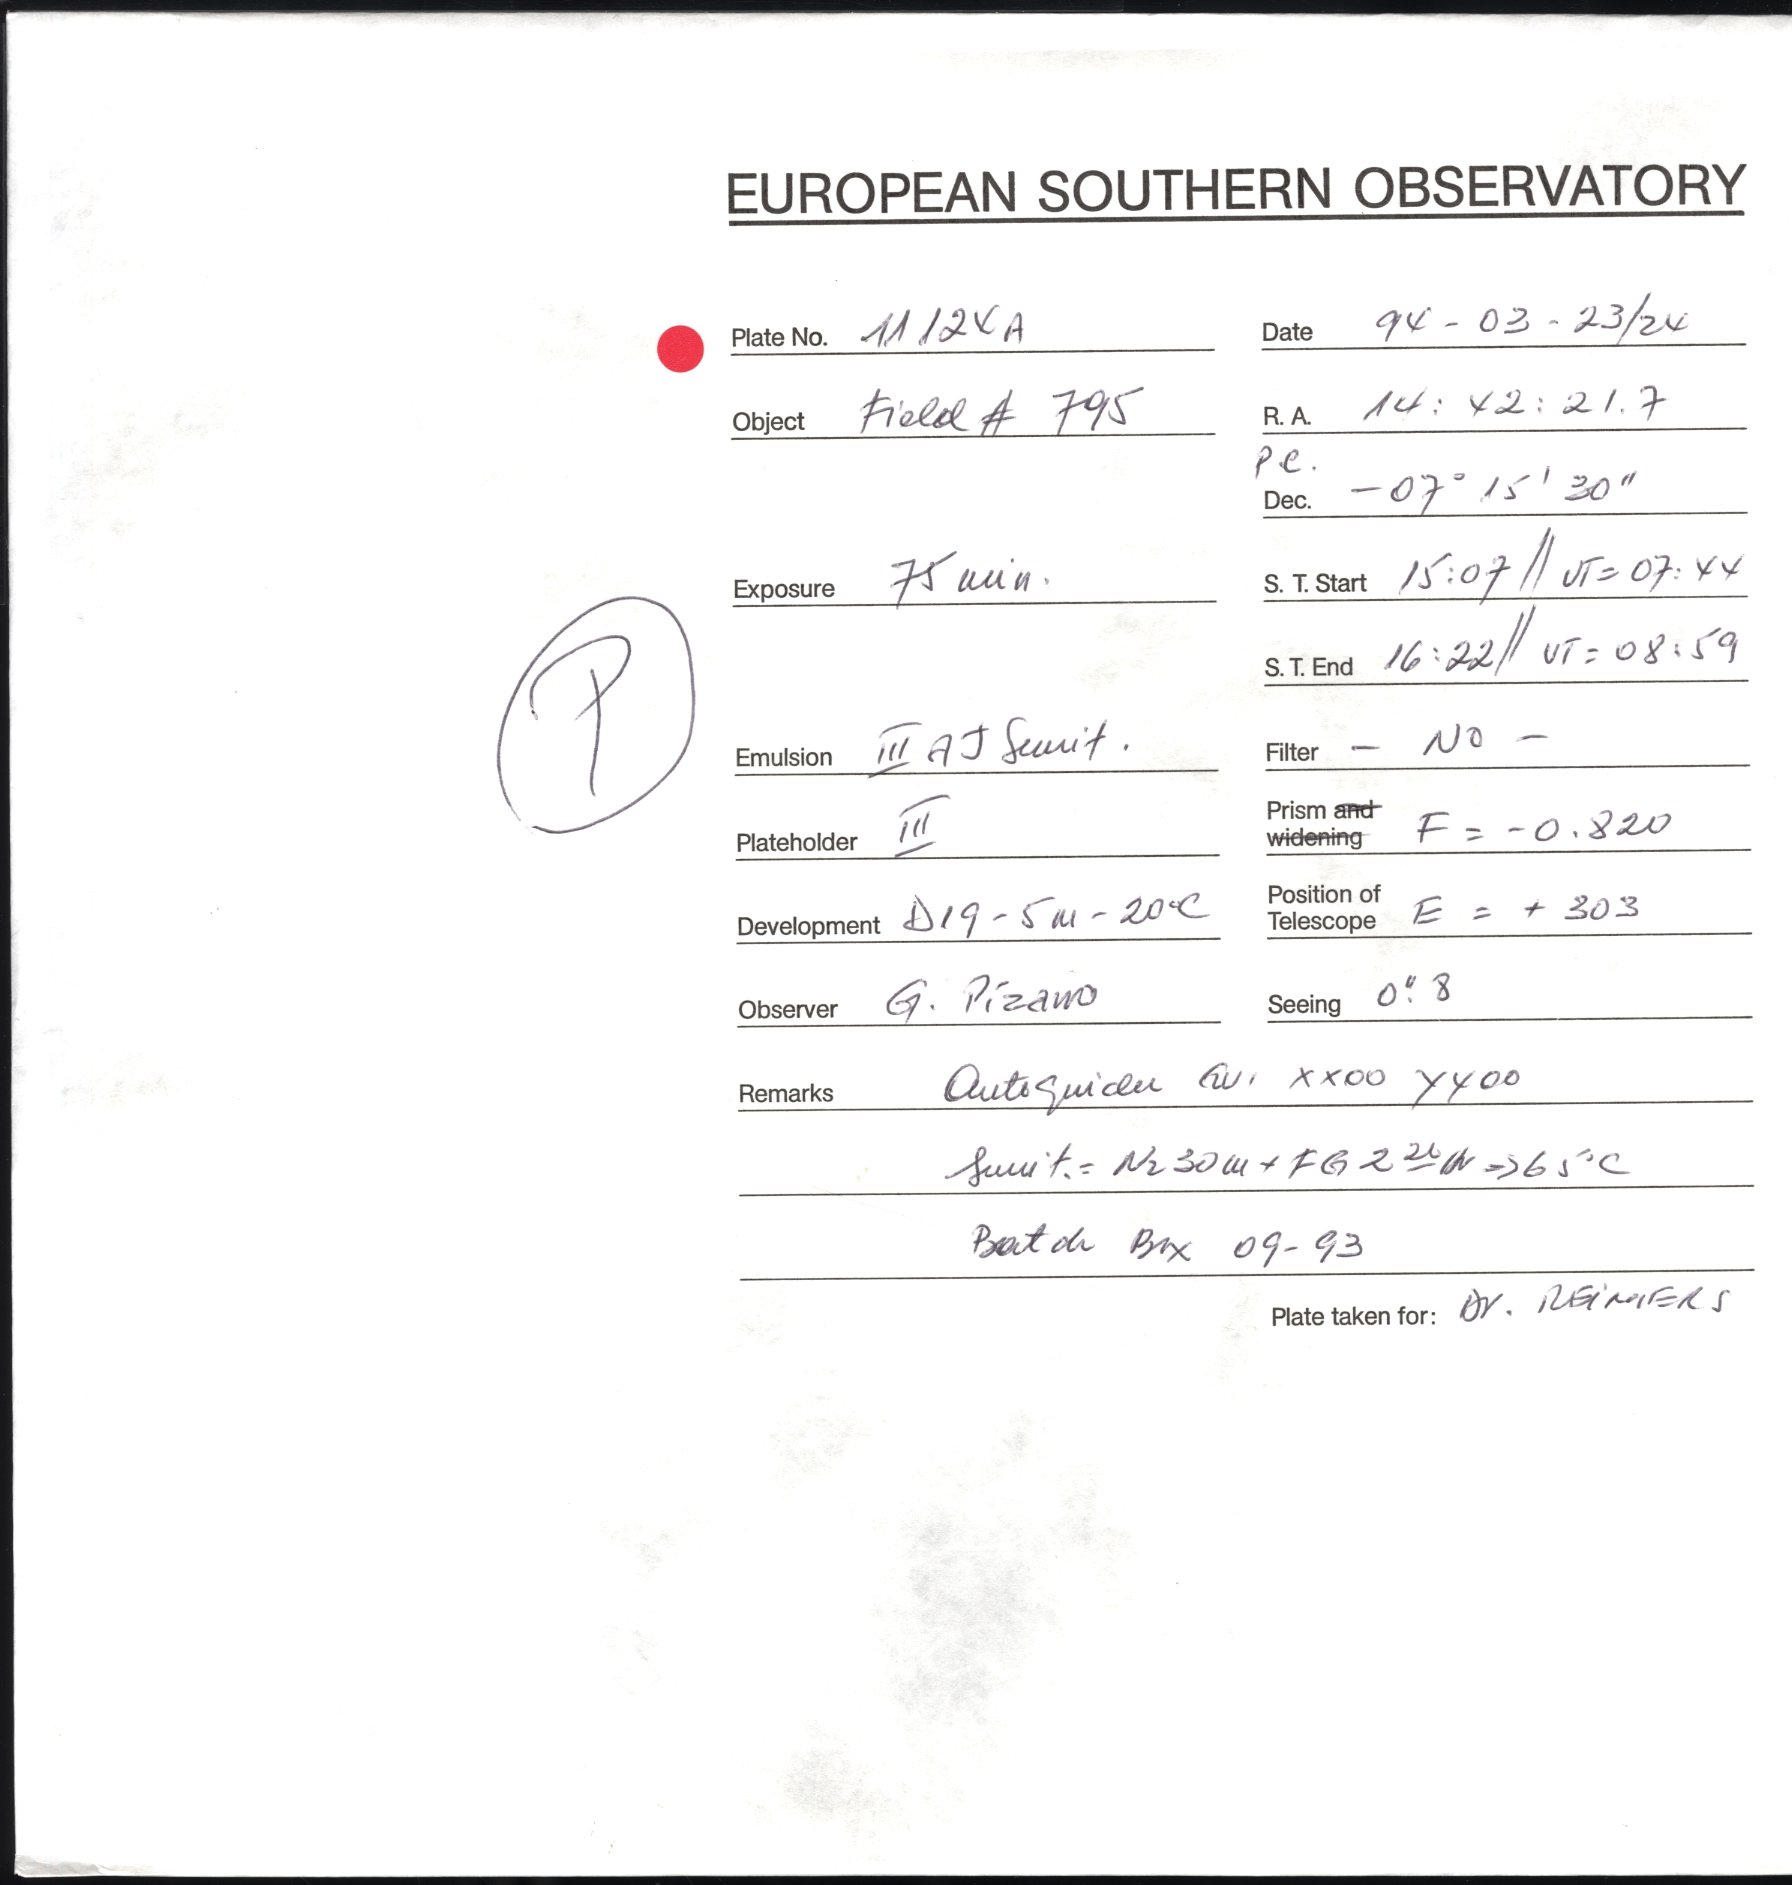 EUROPEAN SOUTHERN OBSERVATORY
Plate No. 11124A
Date 94-03-23/24
Object Field # 795
R. A. 14:42:21.7
P.C.
Dec. -07° 15' 30"
Exposure 75 min.
S. T. Start 15:07 // UT=07:44
S. T. End 16:22 // UT=08:59
P
Emulsion III AJ Sensit.
Filter - NO -
Plateholder III
Prism and widening F = -0.820
Development D19-5m-20°C
Position of Telescope E = +303
Observer G. Pizarro
Seeing 0".8
Remarks Autoguider XX00 YY00
Sensit.= N2 30m + FG 2 => 65°C
Batch Box 09-93
Plate taken for: Dr. REIMERS